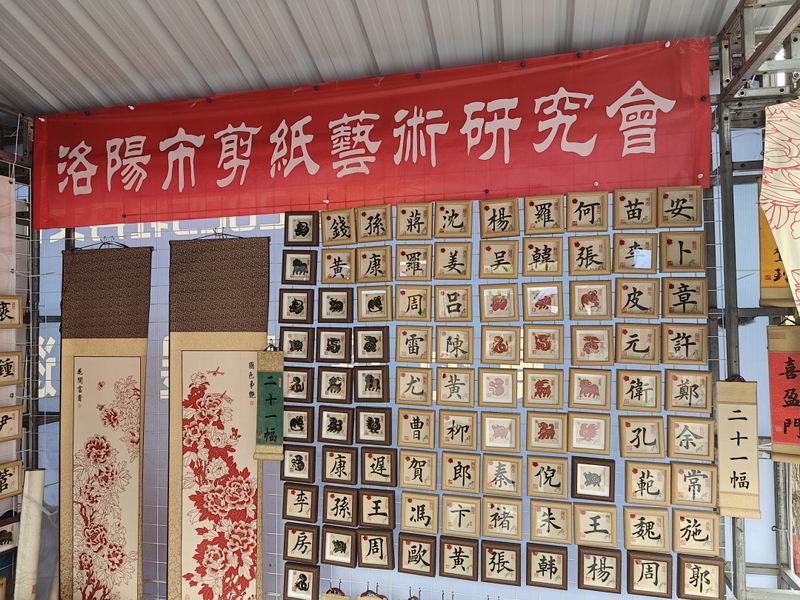 洛陽市剪紙藝術研究會
錢 孫 蔣 沈 楊 羅 何 苗 安
黃 康 羅 姜 吴 韓 張 李 卜
周 吕 皮 章
雷 陳 元 許
尤 黃 衛 鄭
曹 柳 孔 余
康 遲 賀 郎 秦 倪 範 常
李 孫 王 馮 卞 褚 朱 王 魏 施
房 周 歐 黃 張 韩 楊 周 郭
花開富貴
國色天香
二十一幅
二十一幅
喜盈門
鍾
尹